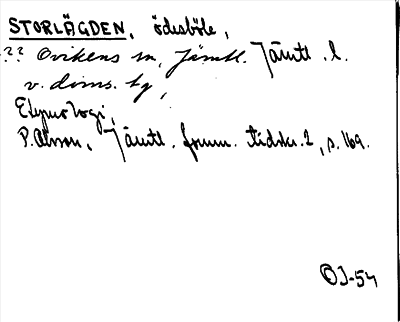 STORLÄGDEN, ödesböle,
?? Ovikens sn, Jämtl. Jämtl. l.
v. doms. hg,
Etymologi,
P. Olsson, Jämtl. fornm. tidskr. 2, s. 169.
OJ-54